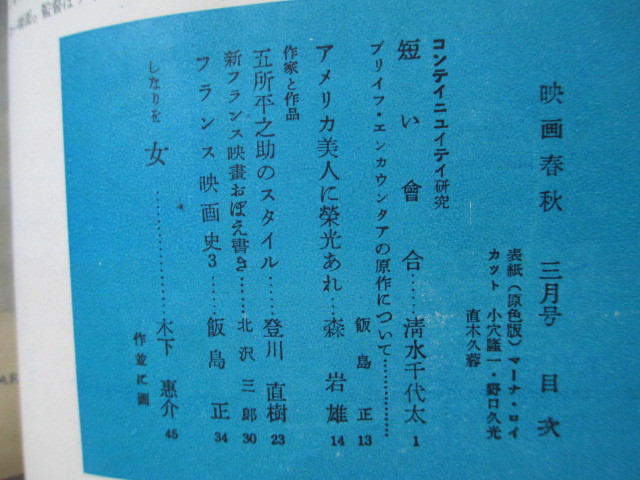 映画春秋　三月号　目次
表紙（原色版）マーナ・ロイ
カット　小穴隆一・野口久光
直木久蓉
コンテイニュイテイ研究
短い會合……清水千代太 1
ブリイフ・エンカウンタアの原作について……飯島正 13
アメリカ美人に榮光あれ…森岩雄 14
作家と作品
五所平之助のスタイル……登川直樹 23
新フランス映畫おぼえ書き…北沢三郎 30
フランス映画史3……飯島正 34
しなりを　女……木下惠介 45
作並に画